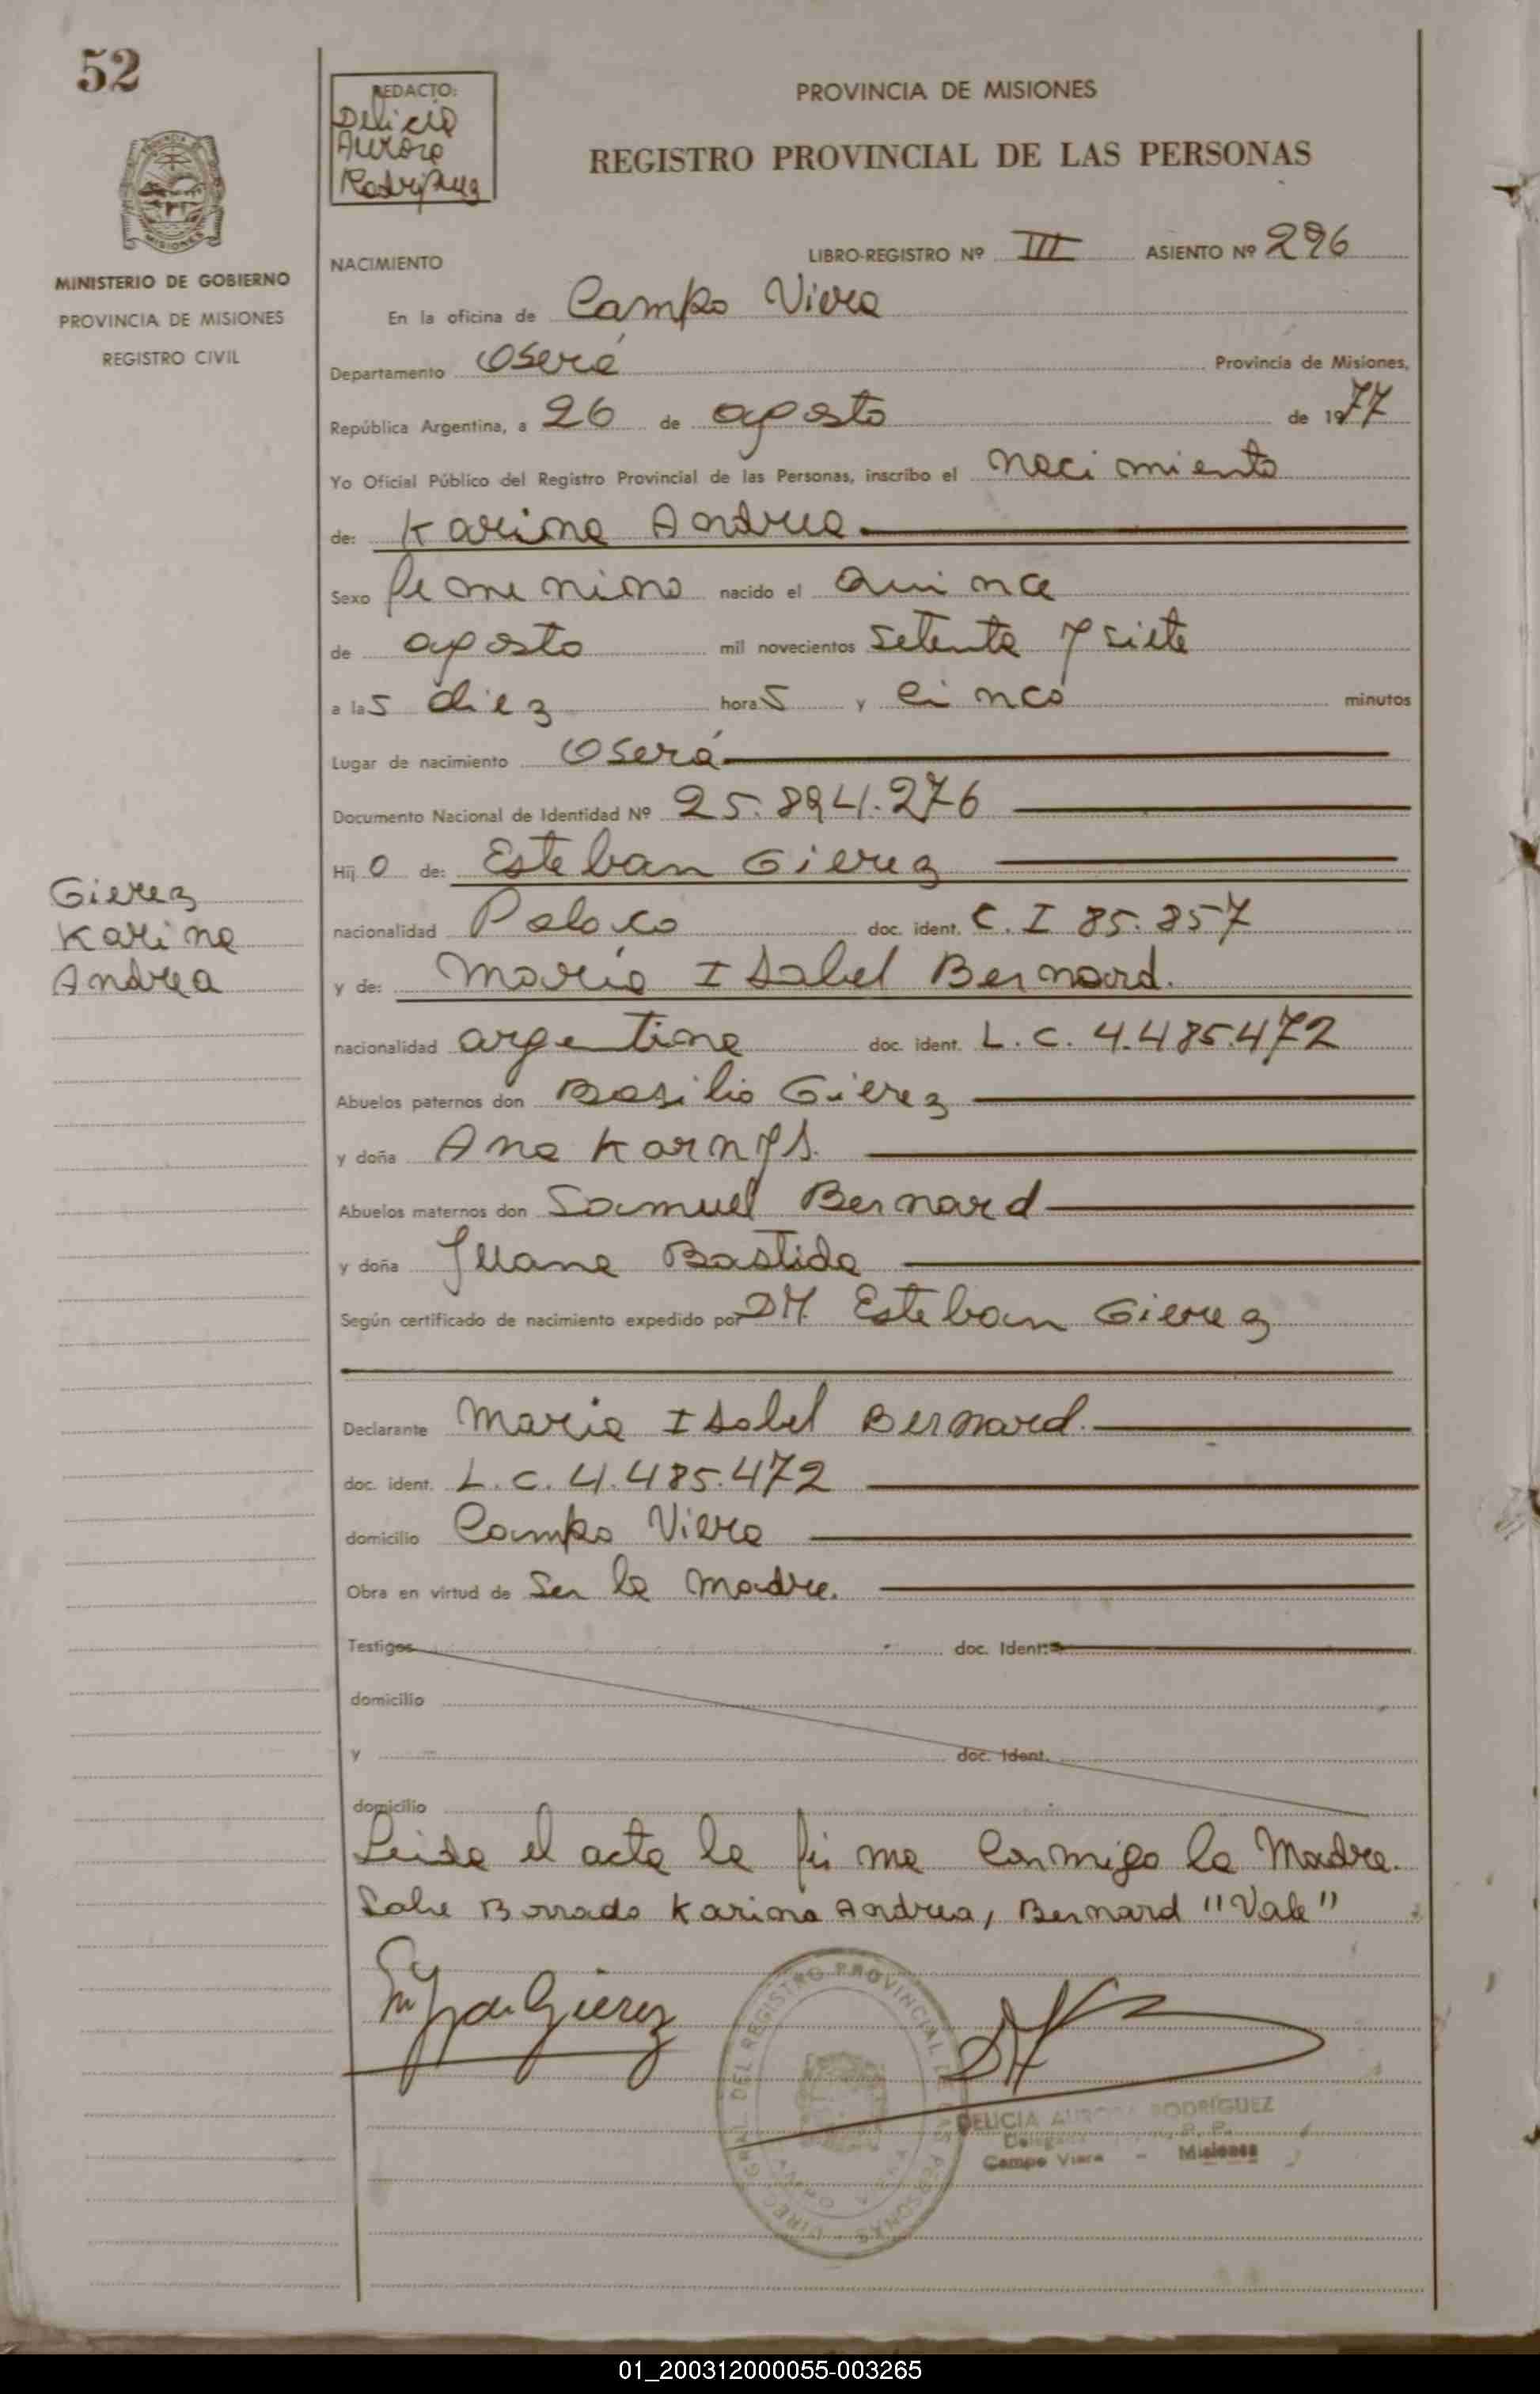 52
REDACTO:
Delicia
Aurora
Rodriguez
PROVINCIA DE MISIONES
REGISTRO PROVINCIAL DE LAS PERSONAS
MISIONES
MINISTERIO DE GOBIERNO
PROVINCIA DE MISIONES
REGISTRO CIVIL
NACIMIENTO LIBRO-REGISTRO Nº III ASIENTO Nº 296
En la oficina de Campo Viera
Departamento Oberá Provincia de Misiones,
República Argentina, a 26 de agosto de 1977
Yo Oficial Público del Registro Provincial de las Personas, inscribo el nacimiento
de: Karina Andrea
Sexo femenino nacido el quince
de agosto mil novecientos setenta y siete
a las diez horas y cinco minutos
Lugar de nacimiento Oberá
Documento Nacional de Identidad Nº 25.894.276
Hijo de: Esteban Gierez
Gierez
Karina
Andrea
nacionalidad Polaco doc. ident. C. I 85.857
y de: Maria Isabel Bernard.
nacionalidad argentina doc. ident. L. C. 4.485.472
Abuelos paternos don Basilio Gierez
y doña Ana Karnys.
Abuelos maternos don Samuel Bernard
y doña Juana Bastida
Según certificado de nacimiento expedido por Esteban Gierez
Declarante Maria Isabel Bernard.
doc. ident. L. C. 4.485.472
domicilio Campo Viera
Obra en virtud de Ser la madre.
Testigos doc. Ident.
domicilio
y doc. Ident.
domicilio
Leida el acta la firma conmigo la Madre.
Sobre Borrado Karina Andrea, Bernard "Vale"
de Gierez
DIREC. GRAL. DEL REGISTRO PROVINCIAL DE LAS PERSONAS
DELICIA AURORA RODRÍGUEZ
Campo Viera - Misiones
01_200312000055-003265